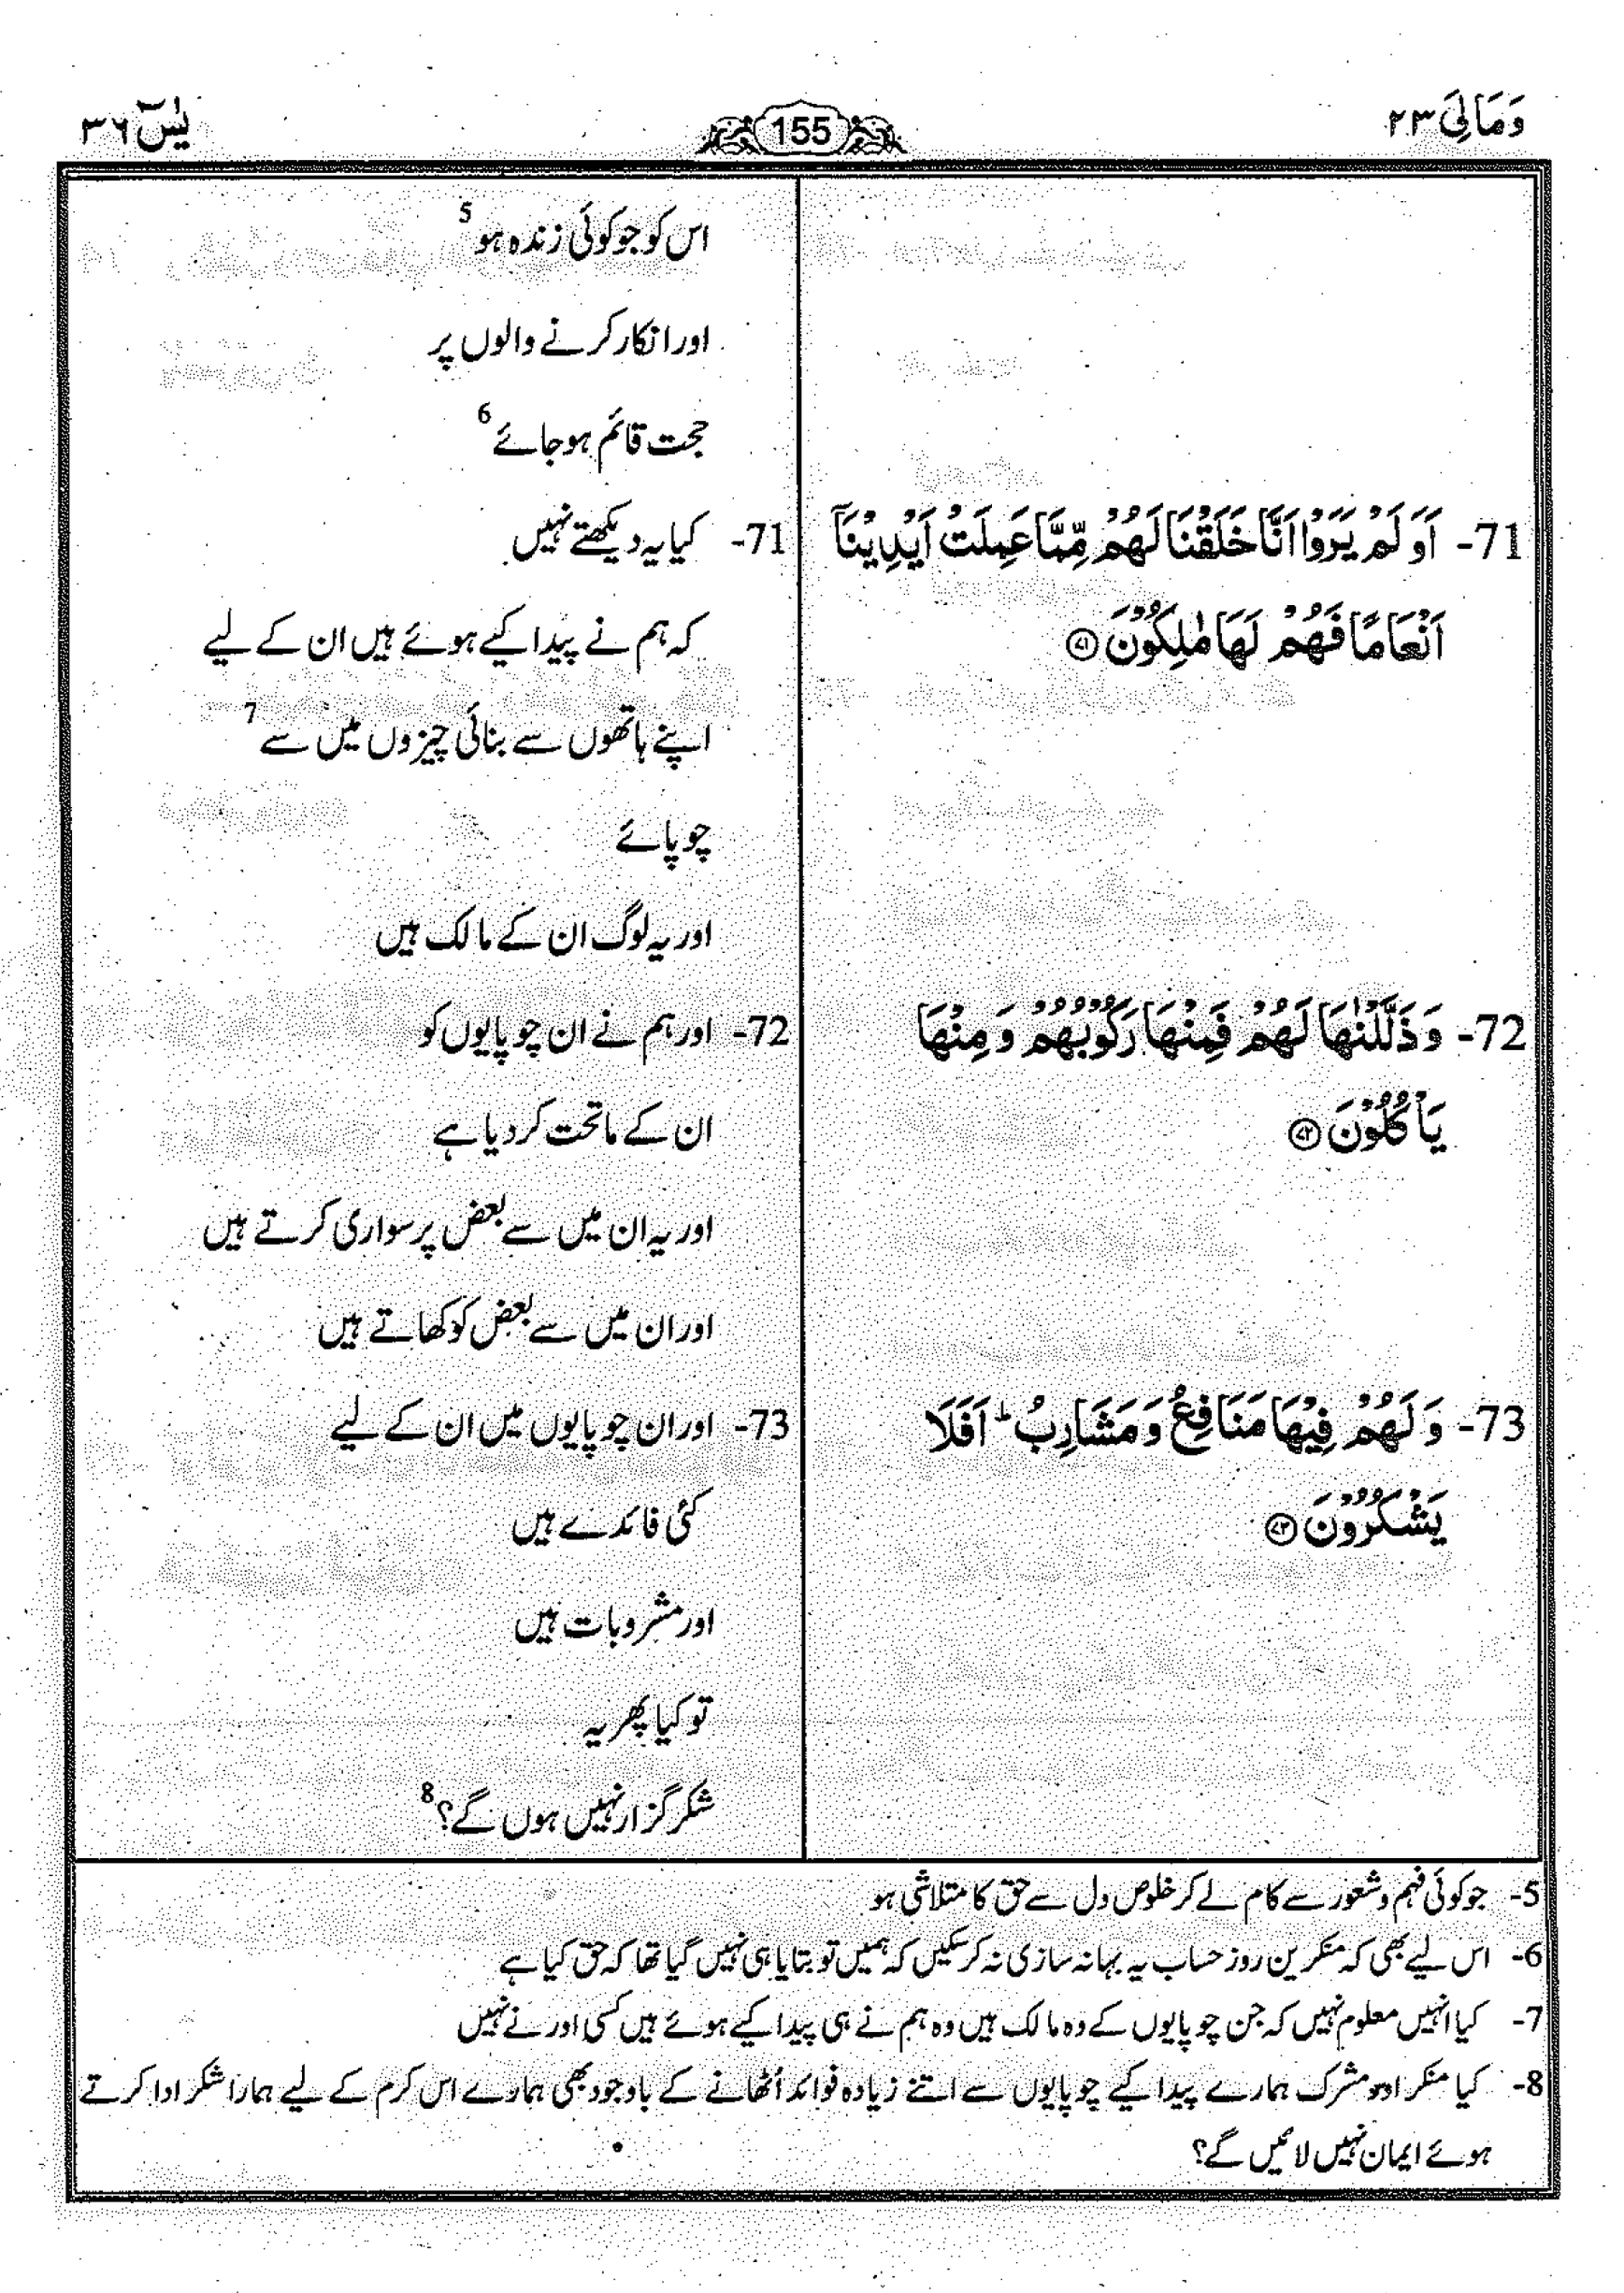 وَمَالِیَ ۲۳
155
یٰسٓ ۳۶
اس کو جو کوئی زندہ ہو 5
اور انکار کرنے والوں پر
حجت قائم ہو جائے 6
71- اَوَلَمْ یَرَوْا اَنَّا خَلَقْنَا لَهُمْ مِّمَّا عَمِلَتْ اَیْدِیْنَاۤ
اَنْعَامًا فَهُمْ لَهَا مٰلِكُوْنَ ۷۱
71- کیا یہ دیکھتے نہیں
کہ ہم نے پیدا کیے ہوئے ہیں ان کے لیے
اپنے ہاتھوں سے بنائی چیزوں میں سے 7
چوپائے
اور یہ لوگ ان کے مالک ہیں
72- وَذَلَّلْنٰهَا لَهُمْ فَمِنْهَا رَكُوْبُهُمْ وَمِنْهَا
یَاْكُلُوْنَ ۷۲
72- اور ہم نے ان چوپایوں کو
ان کے ماتحت کر دیا ہے
اور یہ ان میں سے بعض پر سواری کرتے ہیں
اور ان میں سے بعض کو کھاتے ہیں
73- وَلَهُمْ فِیْهَا مَنَافِعُ وَمَشَارِبُ ؕ اَفَلَا
یَشْكُرُوْنَ ۷۳
73- اور ان چوپایوں میں ان کے لیے
کئی فائدے ہیں
اور مشروبات ہیں
تو کیا پھر یہ
شکر گزار نہیں ہوں گے؟ 8
5- جو کوئی فہم و شعور سے کام لے کر خلوص دل سے حق کا متلاشی ہو
6- اس لیے بھی کہ منکرین روز حساب یہ بہانہ سازی نہ کر سکیں کہ ہمیں تو بتایا ہی نہیں گیا تھا کہ حق کیا ہے
7- کیا انہیں معلوم نہیں کہ جن چوپایوں کے وہ مالک ہیں وہ ہم نے ہی پیدا کیے ہوئے ہیں کسی اور نے نہیں
8- کیا منکر اور مشرک ہمارے پیدا کیے چوپایوں سے اتنے زیادہ فوائد اُٹھانے کے باوجود بھی ہمارے اس کرم کے لیے ہمارا شکر ادا کرتے
ہوئے ایمان نہیں لائیں گے؟